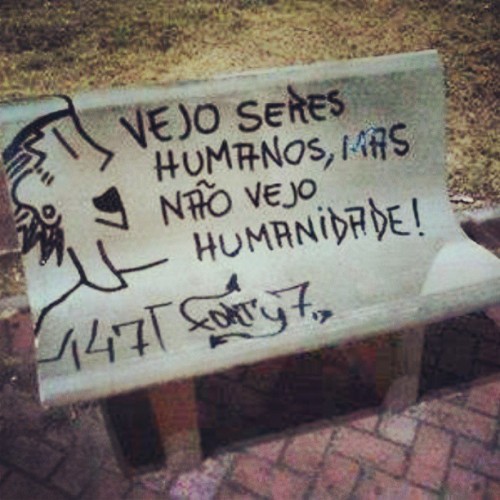 VEJO SERES
HUMANOS, MAS
NÃO VEJO
HUMANIDADE!